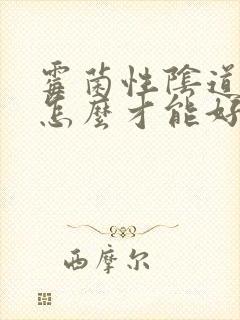 霉菌性陰道
怎麼才能好
西摩尔